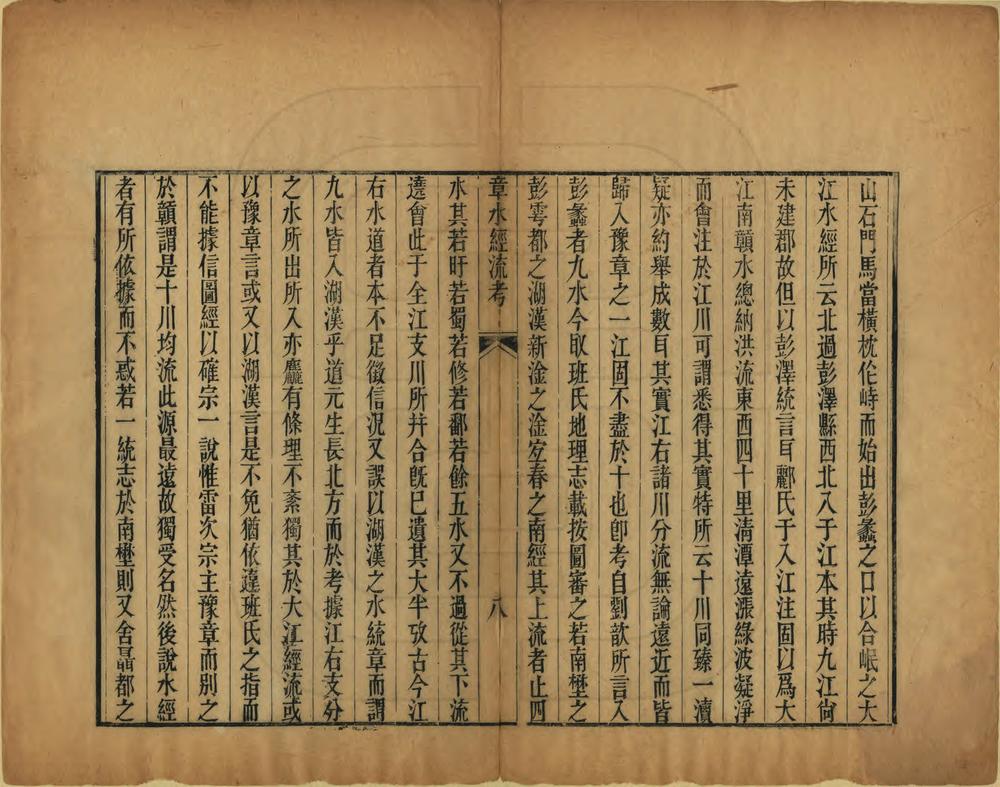 山石門馬當橫枕伦峙而始出彭蠡之口以合岷之大
江水經所云北過彭澤縣西北入于江本其時九江尙
未建郡故但以彭澤統言耳酈氏于入江注固以爲大
江南贛水總納洪流東西四十里淸潭遠漲綠波凝淨
而會注於江川可謂悉得其實特所云十川同臻一瀆
疑亦約舉成數耳其實江右諸川分流無論遠近而皆
歸入豫章之一江固不盡於十也卽考自劉歆所言入
彭蠡者九水今取班氏地理志載按圖審之若南壄之
彭雩都之湖漢新淦之淦宐春之南經其上流者止四
章水經流考
八
水其若旴若蜀若修若鄱若餘五水又不過從其下流
遶會此于全江支川所幷合旣已遺其大半攷古今江
右水道者本不足徵信況又誤以湖漢之水統章而謂
九水皆入湖漢乎道元生長北方而於考據江右支分
之水所出所入亦麤有條理不紊獨其於大江經流或
以豫章言或又以湖漢言是不免猶依違班氏之指而
不能據信圖經以確宗一說惟雷次宗主豫章而別之
於贛謂是十川均流此源最遠故獨受名然後說水經
者有所依據而不惑若一統志於南壄則又舍聶都之